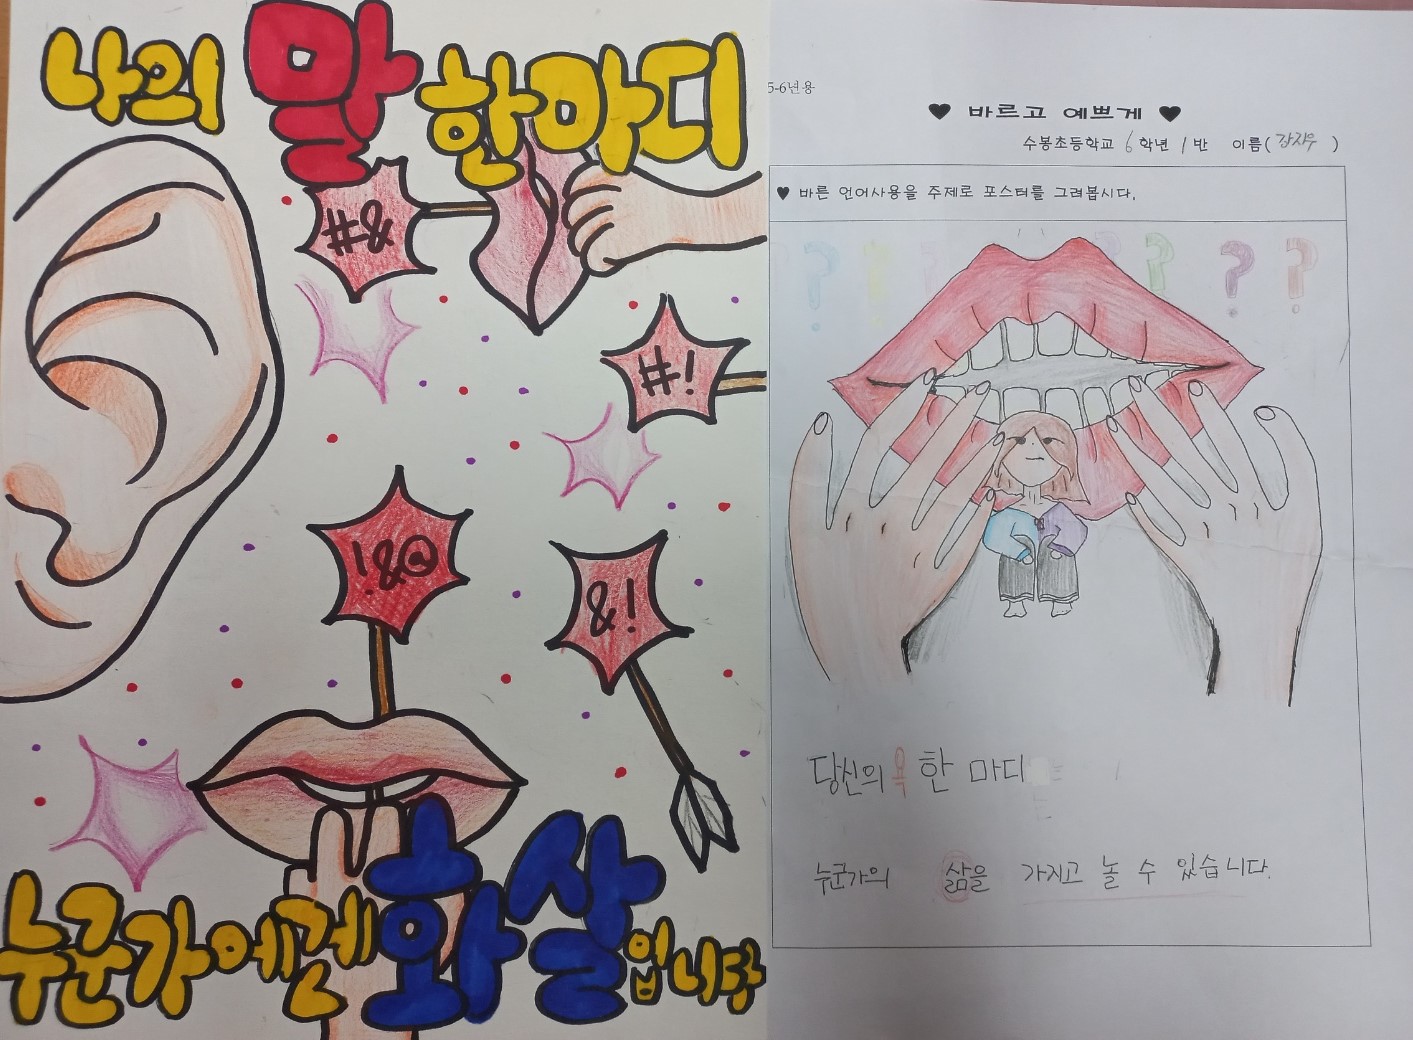 나의 말 한마디
#&
#!
!&@
&!
누군가에겐 화살입니다
5-6년용
♥ 바르고 예쁘게 ♥
수봉초등학교 6학년 1반 이름( )
♥ 바른 언어사용을 주제로 포스터를 그려봅시다.
? ? ? ?
당신의 욕 한 마디
누군가의 삶을 가지고 놀 수 있습니다.